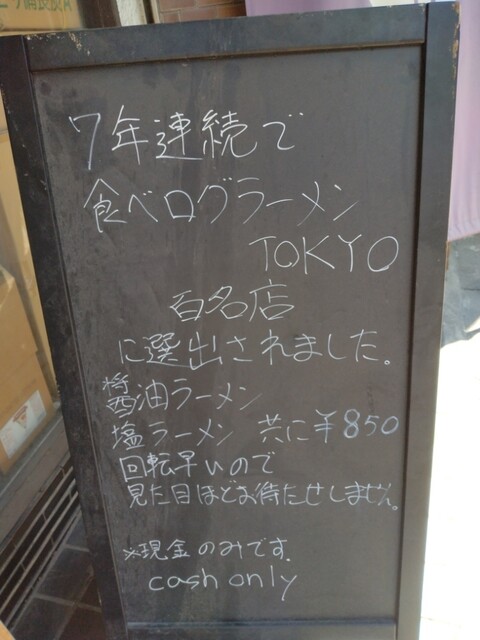 7年連続で
食べログラーメン
TOKYO
百名店
に選出されました。
醤油ラーメン
塩ラーメン 共に¥850
回転早いので
見た目ほどお待たせしません。
※現金のみです。
cash only